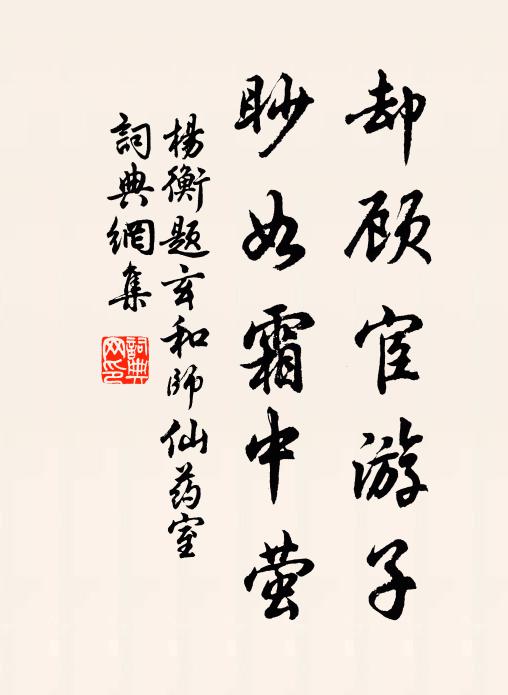 却顾宦游子
眇如霜中萤
杨衡题玄和师仙药室
詞典網集
詞典網印